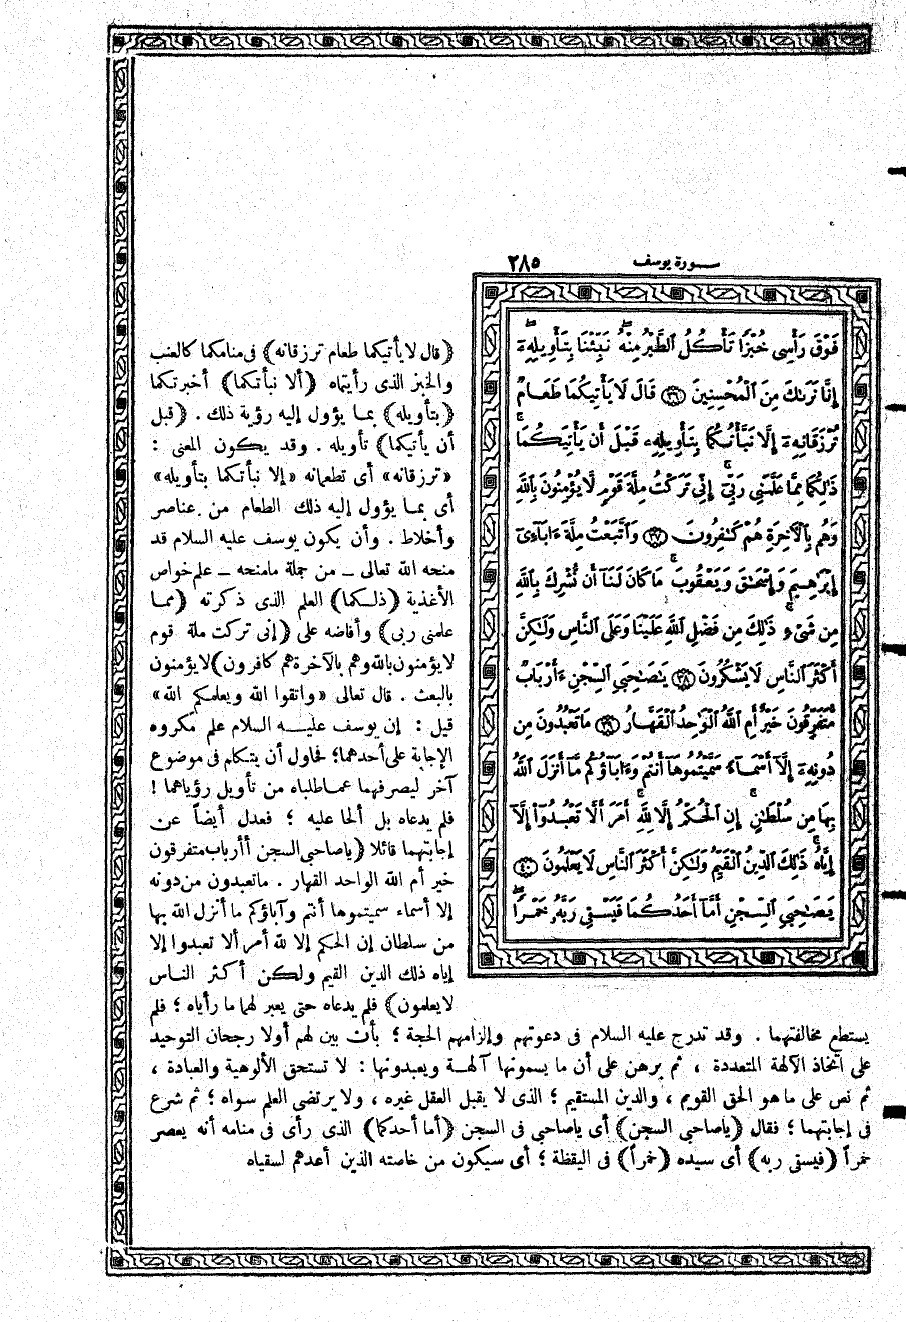 سورة يوسف ٢٨٥
فَوْقَ رَأْسِى خُبْزًا تَأْكُلُ ٱلطَّيْرُ مِنْهُ نَبِّئْنَا بِتَأْوِيلِهِۦٓ
إِنَّا نَرَىٰكَ مِنَ ٱلْمُحْسِنِينَ ﴿٣٦﴾ قَالَ لَا يَأْتِيكُمَا طَعَامٌ
تُرْزَقَانِهِۦٓ إِلَّا نَبَّأْتُكُمَا بِتَأْوِيلِهِۦ قَبْلَ أَن يَأْتِيَكُمَا
ذَٰلِكُمَا مِمَّا عَلَّمَنِى رَبِّىٓ إِنِّى تَرَكْتُ مِلَّةَ قَوْمٍ لَّا يُؤْمِنُونَ بِٱللَّهِ
وَهُم بِٱلْأَخِرَةِ هُمْ كَٰفِرُونَ ﴿٣٧﴾ وَٱتَّبَعْتُ مِلَّةَ ءَابَآءِىٓ
إِبْرَٰهِيمَ وَإِسْحَٰقَ وَيَعْقُوبَ مَا كَانَ لَنَآ أَن نُّشْرِكَ بِٱللَّهِ
مِن شَىْءٍ ذَٰلِكَ مِن فَضْلِ ٱللَّهِ عَلَيْنَا وَعَلَى ٱلنَّاسِ وَلَٰكِنَّ
أَكْثَرَ ٱلنَّاسِ لَا يَشْكُرُونَ ﴿٣٨﴾ يَٰصَٰحِبَىِ ٱلسِّجْنِ ءَأَرْبَابٌ
مُّتَفَرِّقُونَ خَيْرٌ أَمِ ٱللَّهُ ٱلْوَٰحِدُ ٱلْقَهَّارُ ﴿٣٩﴾ مَا تَعْبُدُونَ مِن
دُونِهِۦٓ إِلَّآ أَسْمَآءً سَمَّيْتُمُوهَآ أَنتُمْ وَءَابَآؤُكُم مَّآ أَنزَلَ ٱللَّهُ
بِهَا مِن سُلْطَٰنٍ إِنِ ٱلْحُكْمُ إِلَّا لِلَّهِ أَمَرَ أَلَّا تَعْبُدُوٓا۟ إِلَّآ
إِيَّاهُ ذَٰلِكَ ٱلدِّينُ ٱلْقَيِّمُ وَلَٰكِنَّ أَكْثَرَ ٱلنَّاسِ لَا يَعْلَمُونَ ﴿٤٠﴾
يَٰصَٰحِبَىِ ٱلسِّجْنِ أَمَّآ أَحَدُكُمَا فَيَسْقِى رَبَّهُۥ خَمْرًا
(قال لا يأتيكما طعام ترزقانه) فى منامكما كالعنب
والخبز الذى رأيتماه (ألا نبأتكما) أخبرتكما
(بتأويله) بما يؤول إليه رؤية ذلك . (قبل
أن يأتيكما) تأويله . وقد يكون المعنى :
«ترزقانه» أى تطعمانه «إلا نبأتكما بتأويله»
أى بما يؤول إليه ذلك الطعام من عناصر
وأخلاط . وأن يكون يوسف عليه السلام قد
منحه الله تعالى ــ من جملة مامنحه ــ علم خواص
الأغذية (ذلكما) العلم الذى ذكرته (مما
علمنى ربى) وأفاضه على (إنى تركت ملة قوم
لا يؤمنون بالله وهم بالآخرة هم كافرون) لا يؤمنون
بالبعث . قال تعالى «واتقوا الله ويعلمكم الله»
قيل : إن يوسف عليه السلام علم مكروه
الإجابة على أحدهما؛ فحاول أن يتكلم فى موضوع
آخر ليصرفهما عما طلباه من تأويل رؤياهما !
فلم يدعاه بل ألحا عليه ؛ فعدل أيضاً عن
إجابتهما قائلا (ياصاحبى السجن أأرباب متفرقون
خير أم الله الواحد القهار . ماتعبدون من دونه
إلا أسماء سميتموها أنتم وآباؤكم ما أنزل الله بها
من سلطان إن الحكم إلا لله أمر ألا تعبدوا إلا
إياه ذلك الدين القيم ولكن أكثر الناس
لا يعلمون) فلم يدعاه حتى يعبر لهما ما رأياه ؛ فلم
يستطع مخالفتهما . وقد تدرج عليه السلام فى دعوتهم وإلزامهم الحجة ؛ بأن بين لهم أولا رجحان التوحيد
على اتخاذ الآلهة المتعددة ، ثم برهن على أن ما يسمونها آلهة ويعبدونها : لا تستحق الألوهية والعبادة ،
ثم نص على ما هو الحق القويم ، والدين المستقيم ؛ الذى لا يقبل العقل غيره ، ولا يرتضى العلم سواه ؛ ثم شرع
فى إجابتهما ؛ فقال (ياصاحبى السجن) أى ياصاحبى فى السجن (أما أحدكما) الذى رأى فى منامه أنه يعصر
خمراً (فيسقى ربه) أى سيده (خمراً) فى اليقظة ؛ أى سيكون من خاصته الذين أعدهم لسقياه